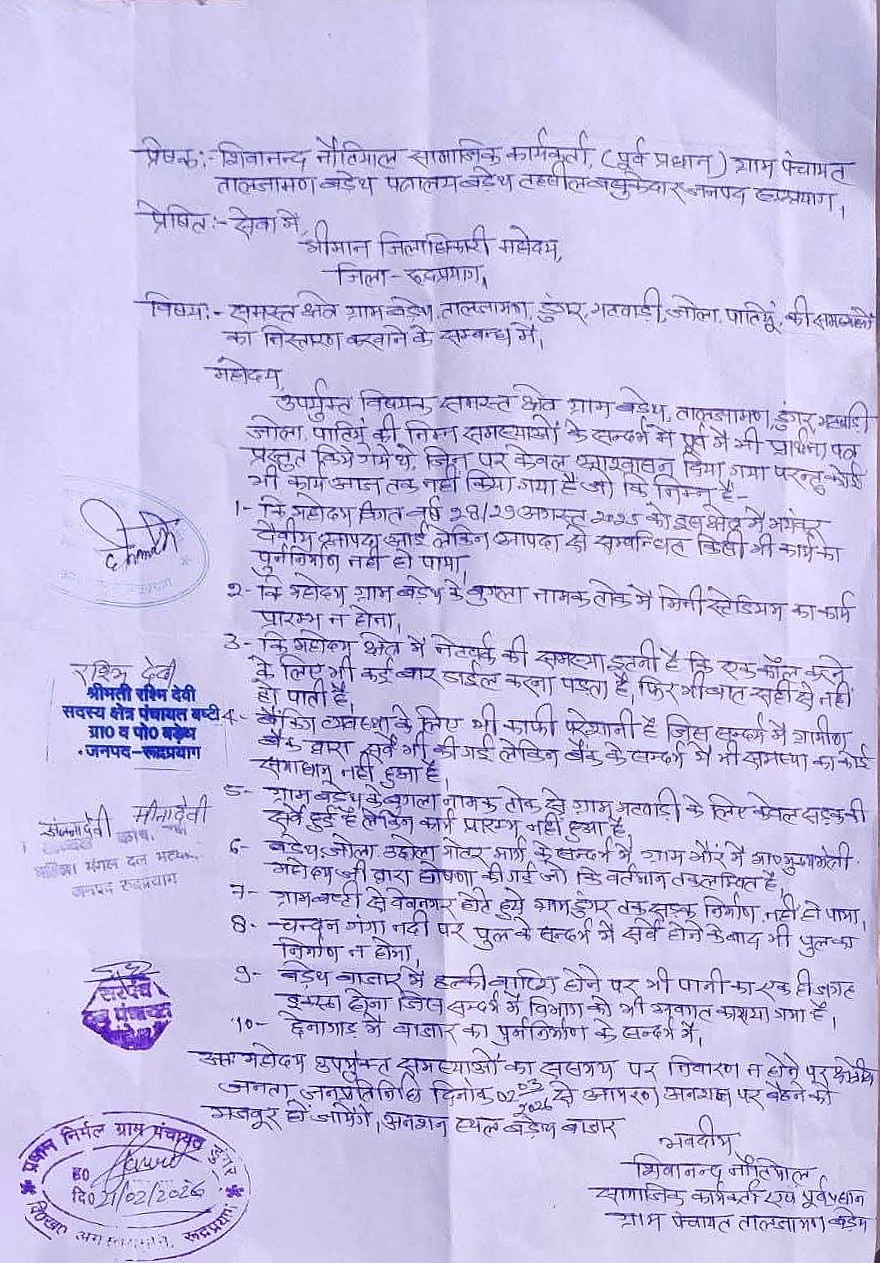 प्रेषक:- शिवानन्द नौटियाल सामाजिक कार्यकर्ता, (पूर्व प्रधान) ग्राम पंचायत
तालजामण बड़ेथ पत्रालय बड़ेथ तहसील बसुकेदार जनपद रुद्रप्रयाग,
प्रेषित:- सेवा में,
श्रीमान जिलाधिकारी महोदय,
जिला - रुद्रप्रयाग,
विषय:- समस्त क्षेत्र ग्राम बड़ेथ, तालजामण, डुंगर, भटवाड़ी, जोला, पाटियूं, की समस्याओं
का निस्तारण करवाने के सम्बन्ध में,
महोदय,
उपर्युक्त विषयक समस्त क्षेत्र ग्राम बड़ेथ, तालजामण, डुंगर, भटवाड़ी
जोला, पाटियूं की निम्न समस्याओं के सन्दर्भ में पूर्व में भी प्रार्थना पत्र
प्रस्तुत किये गये थे, जिन पर केवल आश्वासन दिया गया परन्तु कोई
भी कार्य आज तक नहीं किया गया है जो कि निम्न है -
1- कि महोदय विगत वर्ष 28/29 अगस्त 2025 को इस क्षेत्र में भयंकर
दैवीय आपदा आई लेकिन आपदा से सम्बन्धित किसी भी कार्य का
पुर्ननिर्माण नहीं हो पाया,
2- कि महोदय ग्राम बड़ेथ के बुगला नामक तोक में मिनी स्टेडियम का कार्य
प्रारम्भ न होना,
3- कि महोदय क्षेत्र में नेटवर्क की समस्या इतनी है कि एक कॉल करने
के लिए भी कई बार डाईल करना पड़ता है, फिर भी बात सही से नहीं
हो पाती है,
रश्मि देवी
श्रीमती रश्मि देवी
सदस्य क्षेत्र पंचायत बष्टी
ग्रा० व पो० बड़ेथ
जनपद-रूद्रप्रयाग
4- बैंकिंग व्यवस्था के लिए भी काफी परेशानी है जिस सन्दर्भ में ग्रामीण
बैंक द्वारा सर्वे भी की गई लेकिन बैंक के सन्दर्भ में भी समस्या का कोई
समाधान नहीं हुआ है,
5- ग्राम बड़ेथ के बुगला नामक तोक से ग्राम भटवाड़ी के लिए केवल सड़क की
सर्वे हुई है लेकिन कार्य प्रारम्भ नहीं हुआ है,
मीनादेवी
महिला मंगल दल
जनपद रूद्रप्रयाग
6- बड़ेथ, जोला, उछोला मोटर मार्ग के सन्दर्भ में ग्राम भौंर में मा० मुख्यमंत्री
महोदय जी द्वारा घोषणा की गई जो कि वर्तमान तक लम्बित है,
7- ग्राम बष्टी से होते हुये ग्राम डुंगर तक सड़क निर्माण नहीं हो पाया,
8- चन्दन गंगा नदी पर पुल के सन्दर्भ में सर्वे होने के बाद भी पुल का
निर्माण न होना,
9- बड़ेथ बाजार में हल्की बारिश होने पर भी पानी का एक ही जगह
इकट्ठा होना जिस सन्दर्भ में विभाग को भी अवगत कराया गया है,
10- छेनागाड़ में बाजार का पुर्ननिर्माण के सन्दर्भ में,
सरपंच
वन पंचायत
अतः महोदय उपर्युक्त समस्याओं का ससमय पर निवारण न होने पर क्षेत्रीय
जनता, जनप्रतिनिधि दिनांक 02/03/2026 से आमरण अनशन पर बैठने को
मजबूर हो जायेंगे, अनशन स्थल बड़ेथ बाजार
भवदीय
शिवानन्द नौटियाल
सामाजिक कार्यकर्ता एवं पूर्व प्रधान
ग्राम पंचायत तालजामण बड़ेथ
प्रधान निर्मल ग्राम पंचायत डुंगर
ह०
दि० 21/02/2026
वि०ख० अगस्त्यमुनि, रूद्रप्रयाग